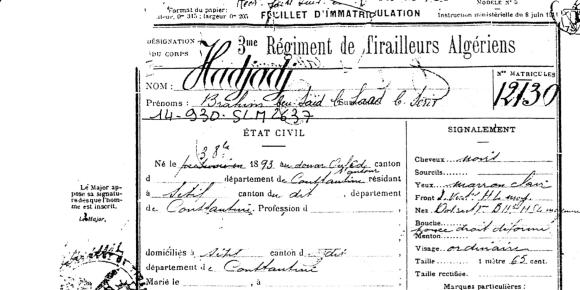 Format du papier:
MODÈLE N°
FEUILLET D'IMMATRICULATION
Instruction ministérielle de 8 juin
DÉSIGNATION DU CORPS
3me Régiment de Tirailleurs Algériens
NOM: Hadjadj
Nos MATRICULES
12130
Prénoms: Brahim ben Saïd ben Saad b.
14-930-SLM 2637
ÉTAT CIVIL
SIGNALEMENT
Né le 1893 au douar Ouled canton
d département de Constantine résidant
à Sétif canton du dit, département
de Constantine Profession d
domiciliés à Sétif canton d dit
département de Constantine
Marié le , à
Cheveux noirs
Sourcils
Yeux marron clair
Front
Nez
Bouche
Menton
Visage ordinaire
Taille 1 mètre 65 cent.
Taille rectifiée
Marques particulières:
Le Major appose sa signature dès que l'homme est inscrit.
Le Major,